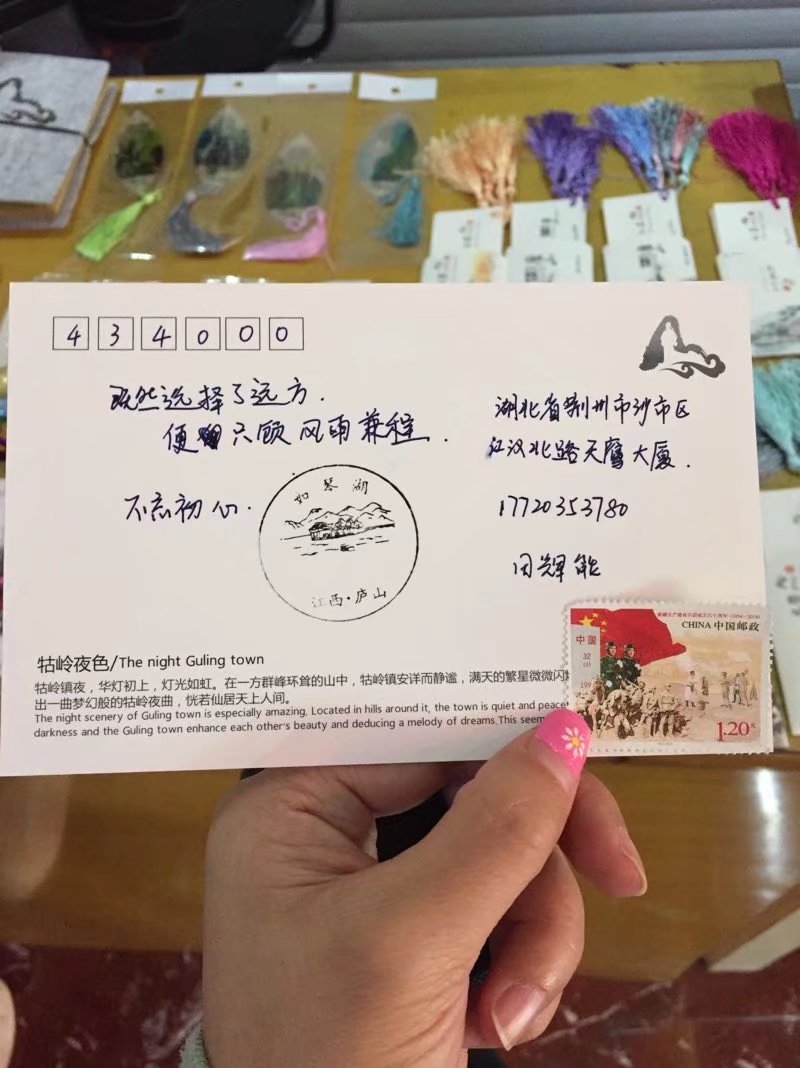 434000
既然选择了远方.
便只顾风雨兼程.
不忘初心.
湖北省荆州市沙市区
江汉北路天鹰大厦.
17720353780
田辉能
如琴湖
江西·庐山
新疆生产建设兵团成立六十周年 (1954—2014)
CHINA 中国邮政
中国
1.20元
牯岭夜色/The night Guling town
牯岭镇夜，华灯初上，灯光如虹。在一方群峰环耸的山中，牯岭镇安详而静谧，满天的繁星微微闪
出一曲梦幻般的牯岭夜曲，恍若仙居天上人间。
The night scenery of Guling town is especially amazing. Located in hills around it, the town is quiet and peace
darkness and the Guling town enhance each other's beauty and deducing a melody of dreams.This seem